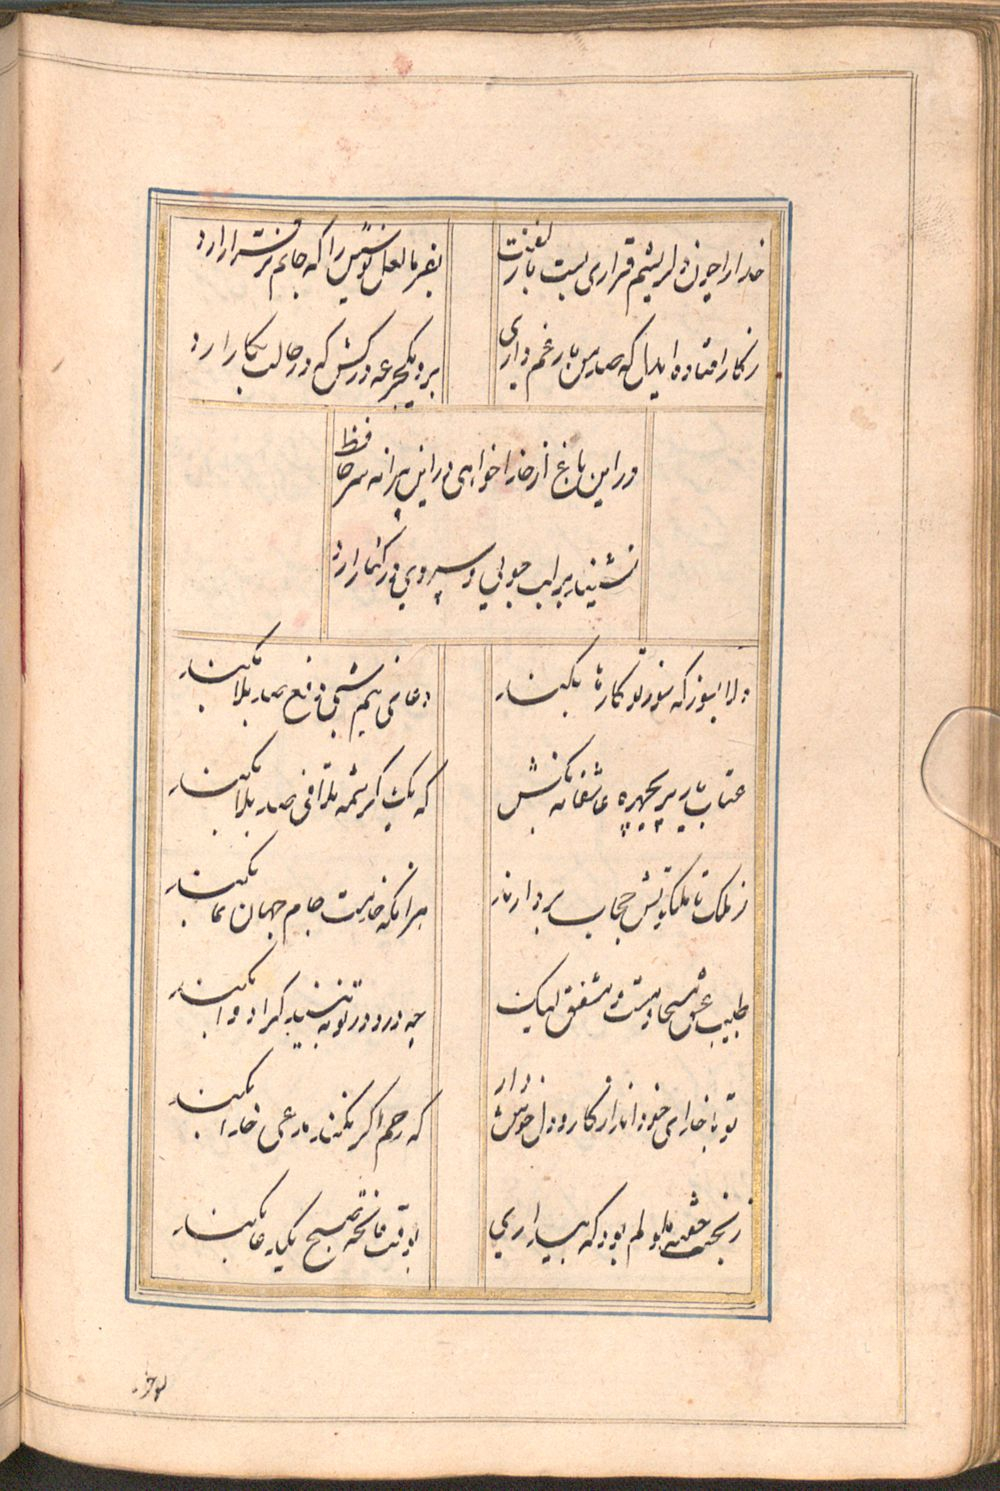 خدا را چون دل ریشم قراری بست با زلفت
بفرما لعل نوشین را که جانم برقرار آرد
ز کار افتاده ای دل که صد من بار غم داری
برو یک جرعه درکش که در حالت بکار آرد
در این باغ از خدا خواهی در این پیرانه سر حافظ
نشیند بر لب جویی و سروی در کنار آرد
دلا بسوز که سوز تو کارها بکند
دعای نیم شبی دفع صد بلا بکند
عتاب یار پری چهره عاشقانه بکش
که یک کرشمه تلافی صد بلا بکند
ز ملک تا ملکوتش حجاب بردارند
هر آنکه خدمت جام جهان نما بکند
طبیب عشق مسیحا دمست و مشفق لیک
چه درد در تو نبیند کرا دوا بکند
تو با خدای خود انداز کار و دل خوش دار
که رحم اگر نکند مدعی خدا بکند
ز بخت خفته ملولم بود که بیداری
بوقت فاتحه صبح یک دعا بکند
بسوخت